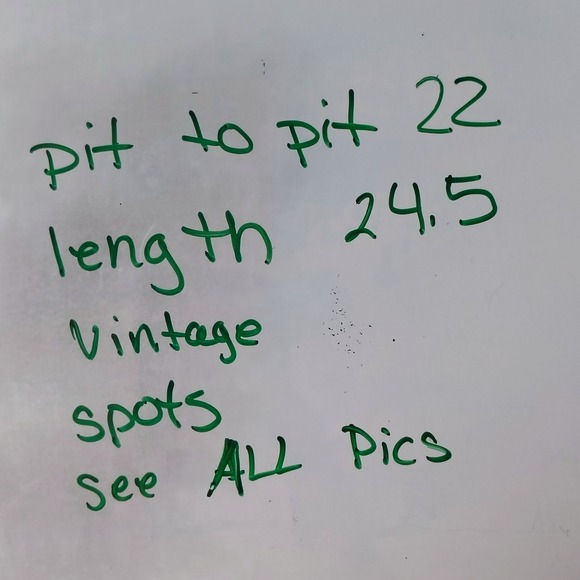 pit to pit 22
length 24.5
vintage
spots
see ALL Pics